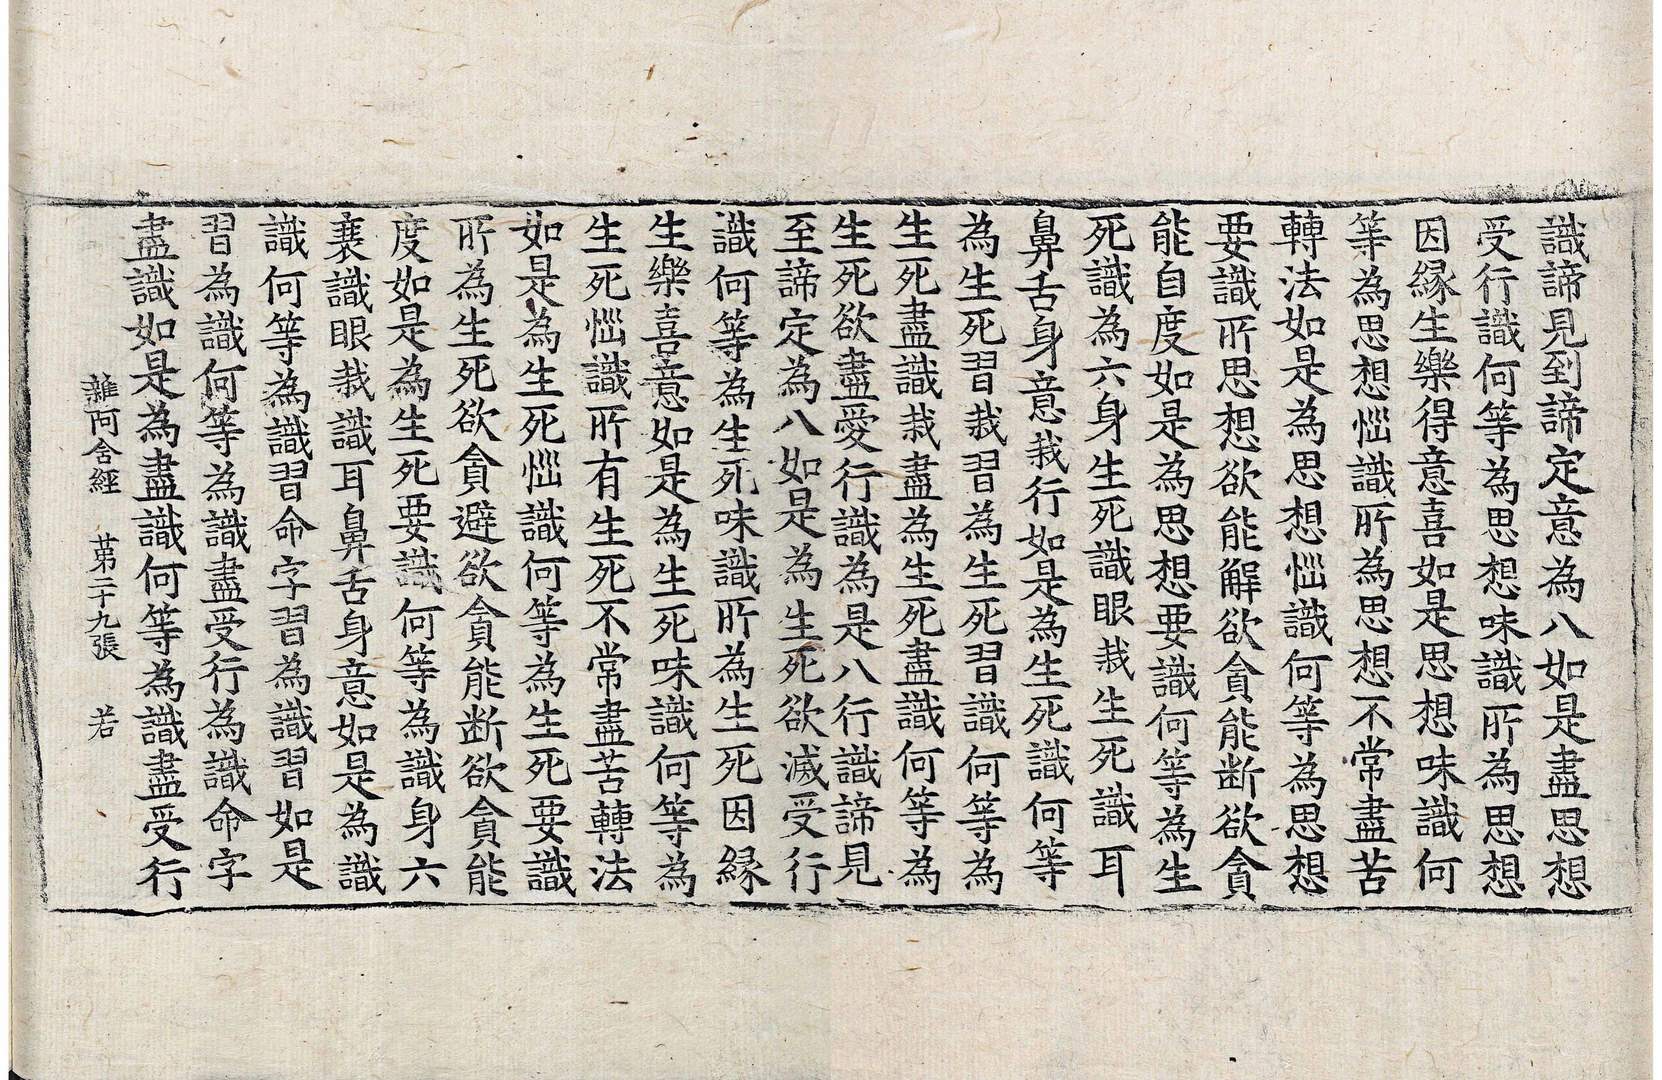 識諦見到諦定意為八如是盡思想
受行識何等為思想味識所為思想
因緣生樂得意喜如是思想味識何
等為思想惱識所為思想不常盡苦
轉法如是為思想惱識何等為思想
要識所思想欲能解欲貪能斷欲貪
能自度如是為思想要識何等為生
死識為六身生死識眼栽生死識耳
鼻舌身意栽行如是為生死識何等
為生死習栽習為生死習識何等為
生死盡識栽盡為生死盡識何等為
生死欲盡愛行識為是八行識諦見
至諦定為八如是為生死欲滅受行
識何等為生死味識所為生死因緣
生樂喜意如是為生死味識何等為
生死惱識所有生死不常盡苦轉法
如是為生死惱識何等為生死要識
所為生死欲貪避欲貪能斷欲貪能
度如是為生死要識何等為識身六
衰識眼栽識耳鼻舌身意如是為識
識何等為識習命字習為識習如是
習為識何等為識盡受行為識命字
盡識如是為盡識何等為識盡受行
雜阿含經 苐二十九張 若